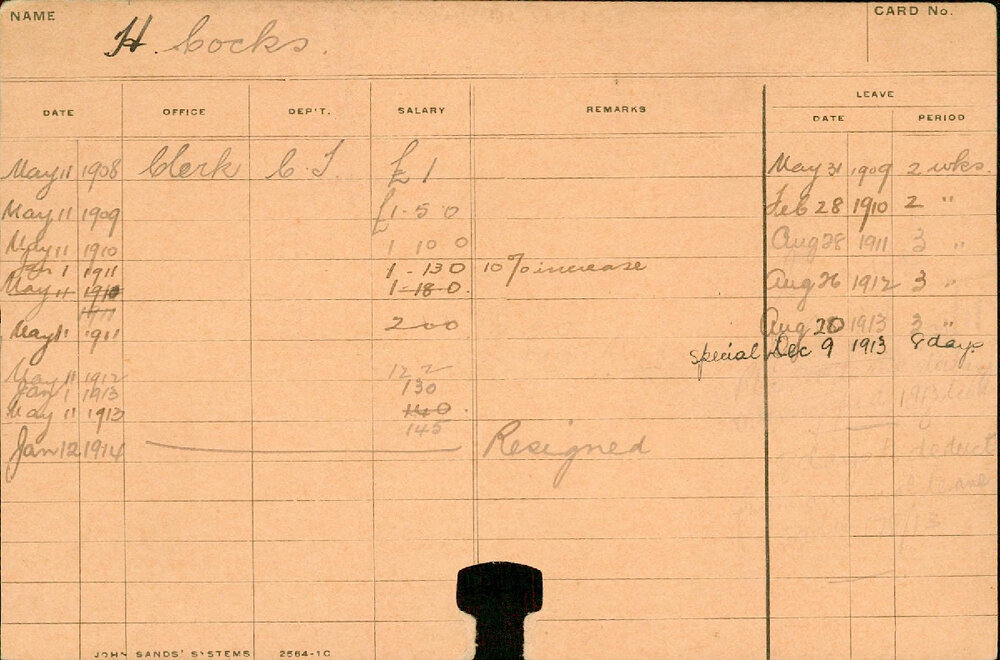 NAME H. Cocks. CARD No.
LEAVE
DATE OFFICE DEP'T. SALARY REMARKS DATE PERIOD
May 11 1908 Clerk C. T. £1 May 31 1909 2 wks.
May 11 1909 £1-5-0 Feb 28 1910 2 "
May 11 1910 1 10 0 Aug 28 1911 3 "
Jan 1 1911 1-13 0 10% increase
May 11 1910 1-18-0. Aug 26 1912 3 "
1911
May 11 1911 2 0 0 Aug 20 1913 3 "
special Dec 9 1913 8 days
May 11 1912 122
Jan 1 1913 130
May 11 1913 140.
145
Jan 12 1914 Resigned
deduct
leave
JOHN SANDS' SYSTEMS 2564-1C